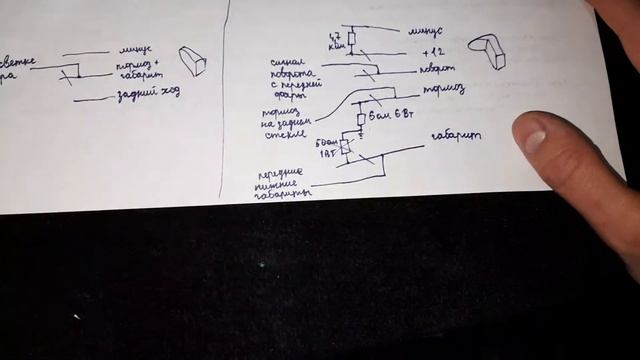 минус
тормоз +
габарит
задний ход
4,7
ком
минус
+12
сигнал
поворота
с передней
фары
поворот
тормоз
тормоз
на заднем
стекле
6 ом 6 Вт
1 Вт
габарит
передние
нижние
габариты